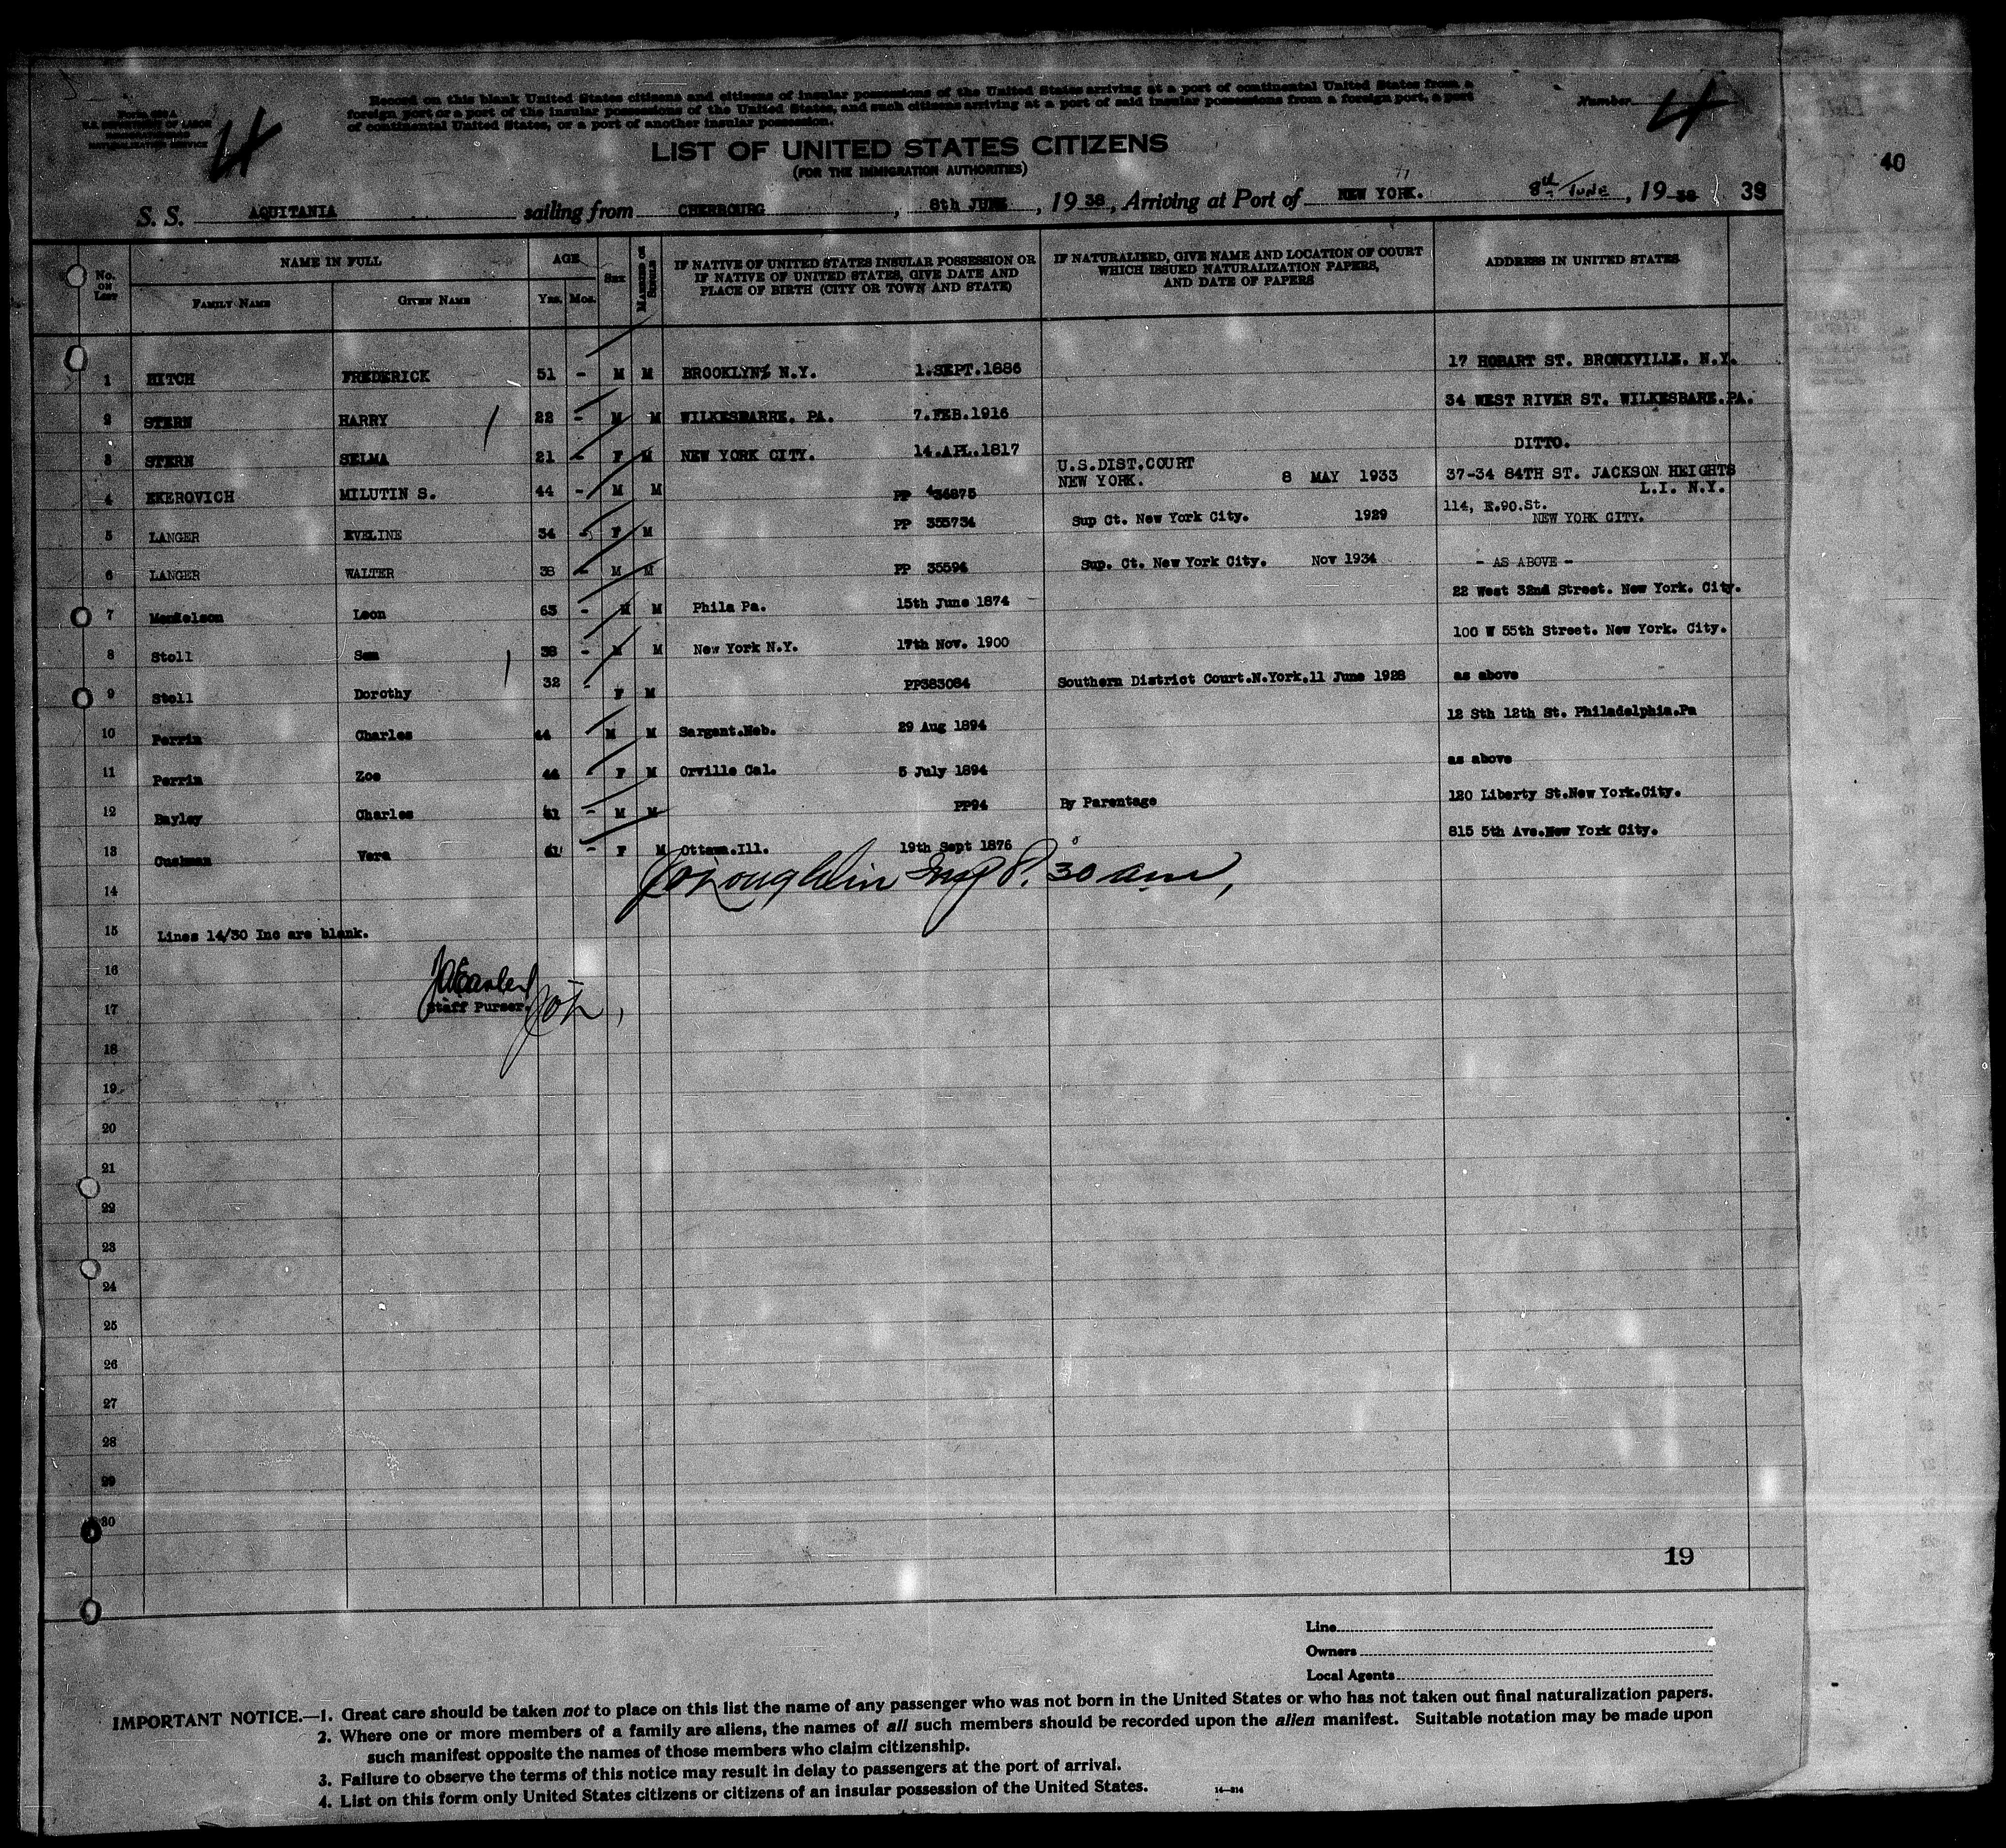 Record on this blank United States citizens and citizens of insular possessions of the United States arriving at a port of continental United States from a
foreign port or a port of the insular possessions of the United States, and such citizens arriving at a port of said insular possessions from a foreign port, a port
of continental United States, or a port of another insular possession.
U.S. DEPARTMENT OF LABOR
NATURALIZATION SERVICE
4
Number 4
LIST OF UNITED STATES CITIZENS
(FOR THE IMMIGRATION AUTHORITIES)
40
S. S. AQUITANIA sailing from CHERBOURG, 8th JUNE, 1938, Arriving at Port of NEW YORK. 8th June, 1938 39
No. ON LIST NAME IN FULL AGE Sex MARRIED OR SINGLE IF NATIVE OF UNITED STATES INSULAR POSSESSION OR IF NATIVE OF UNITED STATES, GIVE DATE AND PLACE OF BIRTH (CITY OR TOWN AND STATE) IF NATURALIZED, GIVE NAME AND LOCATION OF COURT WHICH ISSUED NATURALIZATION PAPERS, AND DATE OF PAPERS ADDRESS IN UNITED STATES
FAMILY NAME GIVEN NAME Yrs. Mos.
1 HITCH FREDERICK 51 - M M BROOKLYN N.Y. 1.SEPT.1886 17 HOBART ST. BRONXVILLE. N.Y.
2 STERN HARRY 22 - M M WILKESBARRE. PA. 7.FEB.1916 34 WEST RIVER ST. WILKESBARE.PA.
3 STERN SELMA 21 - F M NEW YORK CITY. 14.APL.1817 DITTO.
4 EKEROVICH MILUTIN S. 44 - M M PP 434875 U.S.DIST.COURT NEW YORK. 8 MAY 1933 37-34 84TH ST. JACKSON HEIGHTS L.I. N.Y.
5 LANGER EVELINE 34 - F M PP 355734 Sup Ct. New York City. 1929 114, E.90.St. NEW YORK CITY.
6 LANGER WALTER 38 - M M PP 35594 Sup. Ct. New York City. Nov 1934 - AS ABOVE -
7 Leon 63 - M M Phila Pa. 15th June 1874 22 West 32nd Street. New York. City.
8 Stoll Sam 38 - M M New York N.Y. 17th Nov. 1900 100 W 55th Street. New York. City.
9 Stoll Dorothy 32 - F M PP383084 Southern District Court.N.York.11 June 1928 as above
10 Perrin Charles 44 M M Sargent.Neb. 29 Aug 1894 12 Sth 12th St. Philadelphia.Pa
11 Perrin Zoe 44 - F M Orville Cal. 5 July 1894 as above
12 Bayley Charles 61 - M M PP94 By Parentage 120 Liberty St.New York.City.
13 Cushman Vera 61 - F M Ottawa.Ill. 19th Sept 1876 815 5th Ave.New York City.
14 8.30 am,
15 Lines 14/30 Inc are blank.
16
17 Staff Purser.
18
19
20
21
22
23
24
25
26
27
28
29
30
19
Line
Owners
Local Agents
IMPORTANT NOTICE.—1. Great care should be taken not to place on this list the name of any passenger who was not born in the United States or who has not taken out final naturalization papers.
2. Where one or more members of a family are aliens, the names of all such members should be recorded upon the alien manifest. Suitable notation may be made upon
such manifest opposite the names of those members who claim citizenship.
3. Failure to observe the terms of this notice may result in delay to passengers at the port of arrival.
4. List on this form only United States citizens or citizens of an insular possession of the United States. 14—814